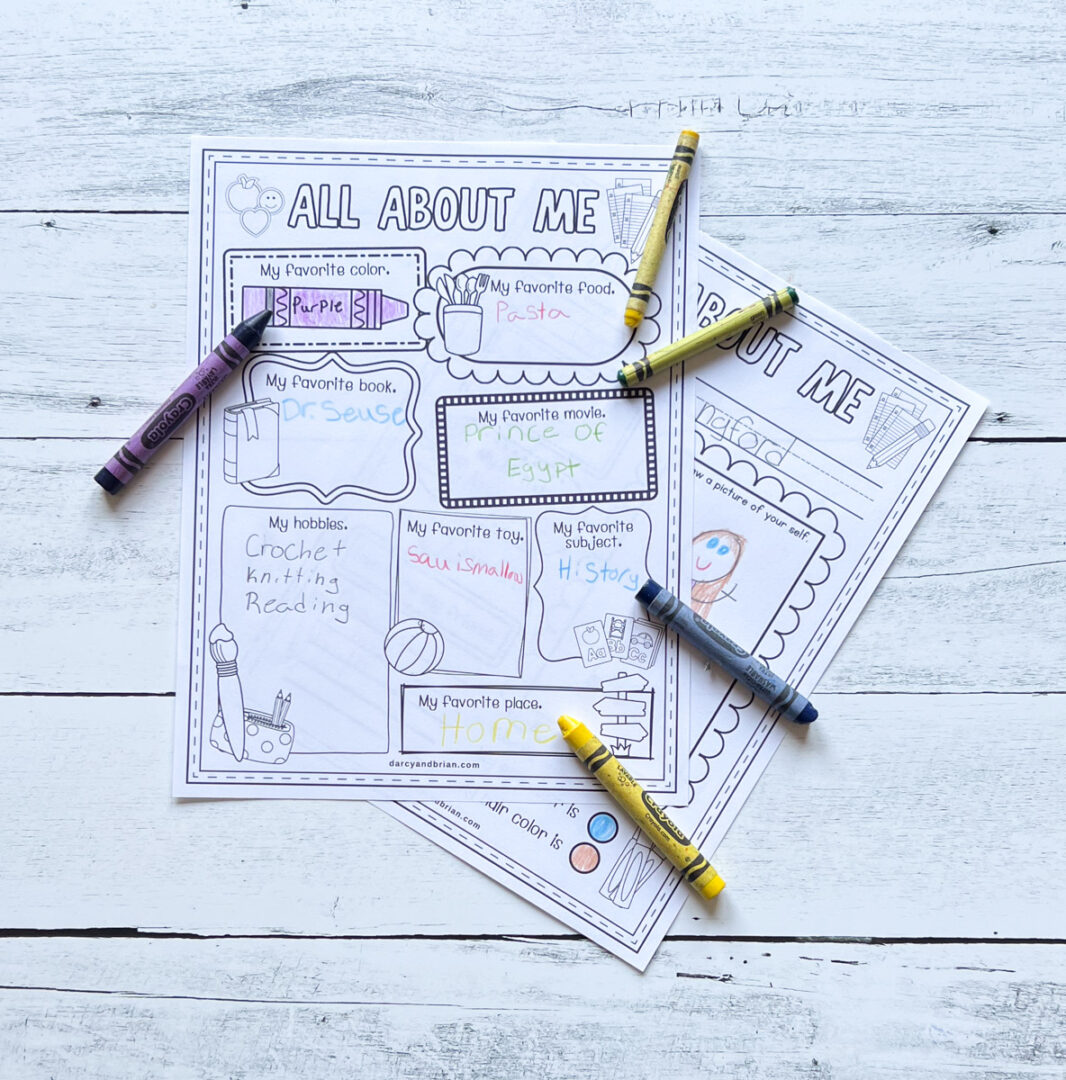 ALL ABOUT ME
My favorite color.
Purple
My favorite food.
Pasta
My favorite book.
Dr. Seuse
My favorite movie.
Prince of
Egypt
My hobbies.
Crochet
Knitting
Reading
My favorite toy.
Squismallow
My favorite
subject.
History
Aa Bb Cc
My favorite place.
Home
darcyandbrian.com
Crayola
ABOUT ME
a picture of your self.
Crayola
Crayola
is
hair color is